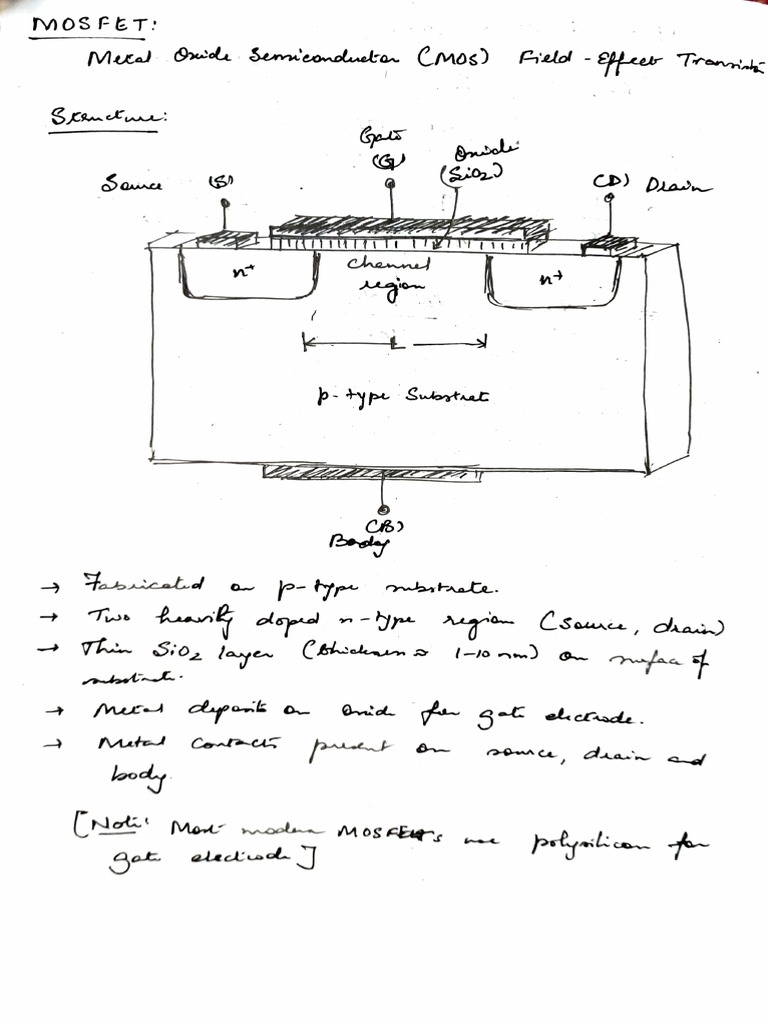 MOSFET:
Metal Oxide Semiconductor (MOS) Field-Effect Transistor
Structure:
Gate
(G)
Oxide
(SiO2)
Source (S)
(D) Drain
n+
channel
region
n+
L
p-type Substrate
(B)
Body
→ Fabricated on p-type substrate.
→ Two heavily doped n-type region (source, drain)
→ Thin SiO2 layer (thickness ≈ 1-10 nm) on surface of
substrate.
→ Metal deposits on oxide for gate electrode.
→ Metal contacts present on source, drain and
body.
[Note: Most modern MOSFETs use polysilicon for
gate electrode]